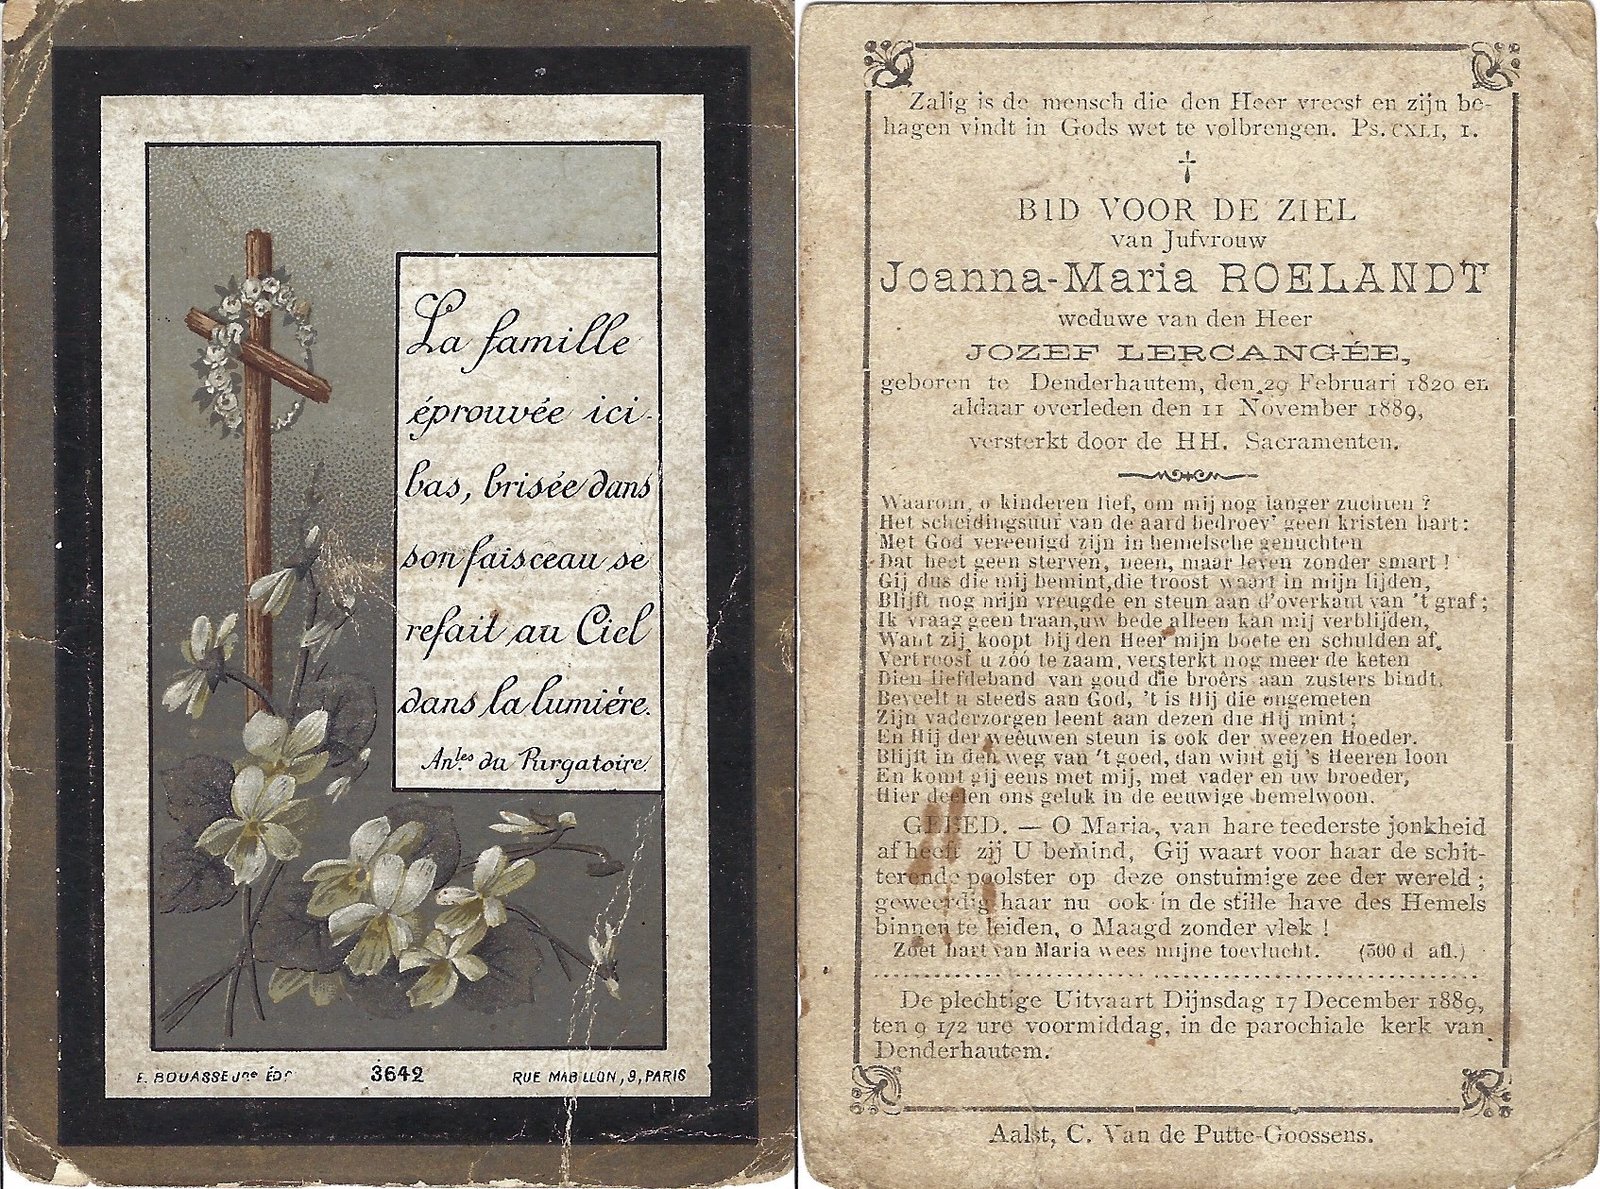 La famille
éprouvée ici-
bas, brisée dans
son faisceau se
refait au Ciel
dans la lumière.
An.les du Purgatoire.
E. BOUASSE Jne ÉDr
3642
RUE MABILLON, 9, PARIS
Zalig is de mensch die den Heer vreest en zijn be-
hagen vindt in Gods wet te volbrengen. Ps. CXLI, 1.
†
BID VOOR DE ZIEL
van Jufvrouw
Joanna-Maria ROELANDT
weduwe van den Heer
JOZEF LERCANGÉE,
geboren te Denderhautem, den 29 Februari 1820 en
aldaar overleden den 11 November 1889,
versterkt door de HH. Sacramenten.
Waarom, o kinderen lief, om mij nog langer zuchten ?
Het scheidingsuur van de aard bedroev' geen kristen hart:
Met God vereenigd zijn in hemelsche genuchten
Dat heet geen sterven, neen, maar leven zonder smart !
Gij dus die mij bemint, die troost waart in mijn lijden,
Blijft nog mijn vreugde en steun aan d'overkant van 't graf ;
Ik vraag geen traan, uw bede alleen kan mij verblijden,
Want zij koopt bij den Heer mijn boete en schulden af.
Vertroost u zóó te zaam, versterkt nog meer de keten
Dien liefdeband van goud die broêrs aan zusters bindt.
Beveelt u steeds aan God, 't is Hij die ongemeten
Zijn vaderzorgen leent aan dezen die Hij mint ;
En Hij der weêuwen steun is ook der weezen Hoeder.
Blijft in den weg van 't goed, dan wint gij 's Heeren loon
En komt gij eens met mij, met vader en uw broeder,
Hier deelen ons geluk in de eeuwige hemelwoon.
GEBED. — O Maria, van hare teederste jonkheid
af heeft zij U bemind, Gij waart voor haar de schit-
terende poolster op deze onstuimige zee der wereld ;
geweerdig haar nu ook in de stille have des Hemels
binnen te leiden, o Maagd zonder vlek !
Zoet hart van Maria wees mijne toevlucht. (300 d afl.)
De plechtige Uitvaart Dijnsdag 17 December 1889,
ten 9 1/2 ure voormiddag, in de parochiale kerk van
Denderhautem.
Aalst, C. Van de Putte-Goossens.